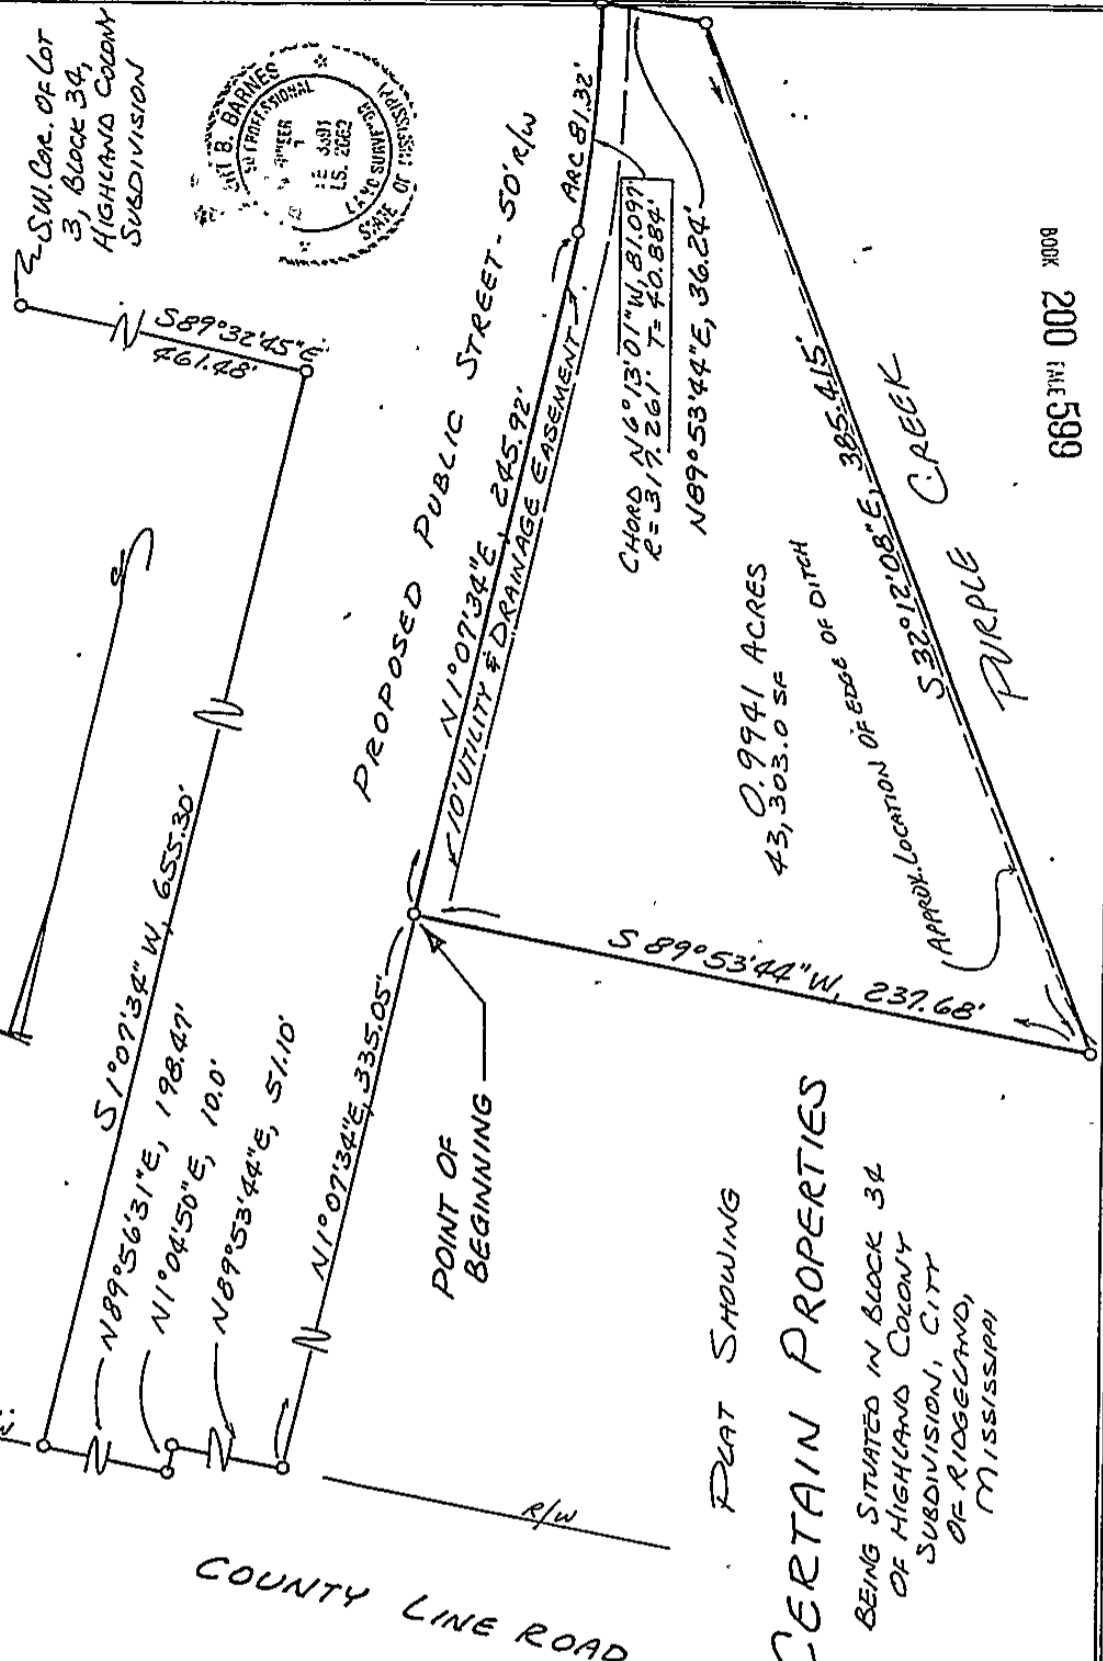 S.W. COR. OF LOT
3, BLOCK 34,
HIGHLAND COLONY
SUBDIVISION
B. BARNES
PROFESSIONAL
LS. 2662
LAND SURVEYOR
STATE OF MISSISSIPPI
S89°32'45"E
461.48'
S1°07'34"W, 655.30'
N89°56'31"E, 198.47'
N1°04'50"E, 10.0'
N89°53'44"E, 51.10'
N1°07'34"E, 335.05'
PROPOSED PUBLIC STREET - 50' R/W
N1°07'34"E, 245.92'
10' UTILITY & DRAINAGE EASEMENT
ARC 81.32'
CHORD N6°13'01"W, 81.097'
R=317.261' T=40.884'
N89°53'44"E, 36.24'
POINT OF
BEGINNING
S89°53'44"W, 237.68'
0.9941 ACRES
43,303.0 SF
APPROX. LOCATION OF EDGE OF DITCH
S32°12'08"E, 385.415'
PURPLE CREEK
BOOK 200 PAGE 599
R/W
COUNTY LINE ROAD
PLAT SHOWING
CERTAIN PROPERTIES
BEING SITUATED IN BLOCK 34
OF HIGHLAND COLONY
SUBDIVISION, CITY
OF RIDGELAND,
MISSISSIPPI